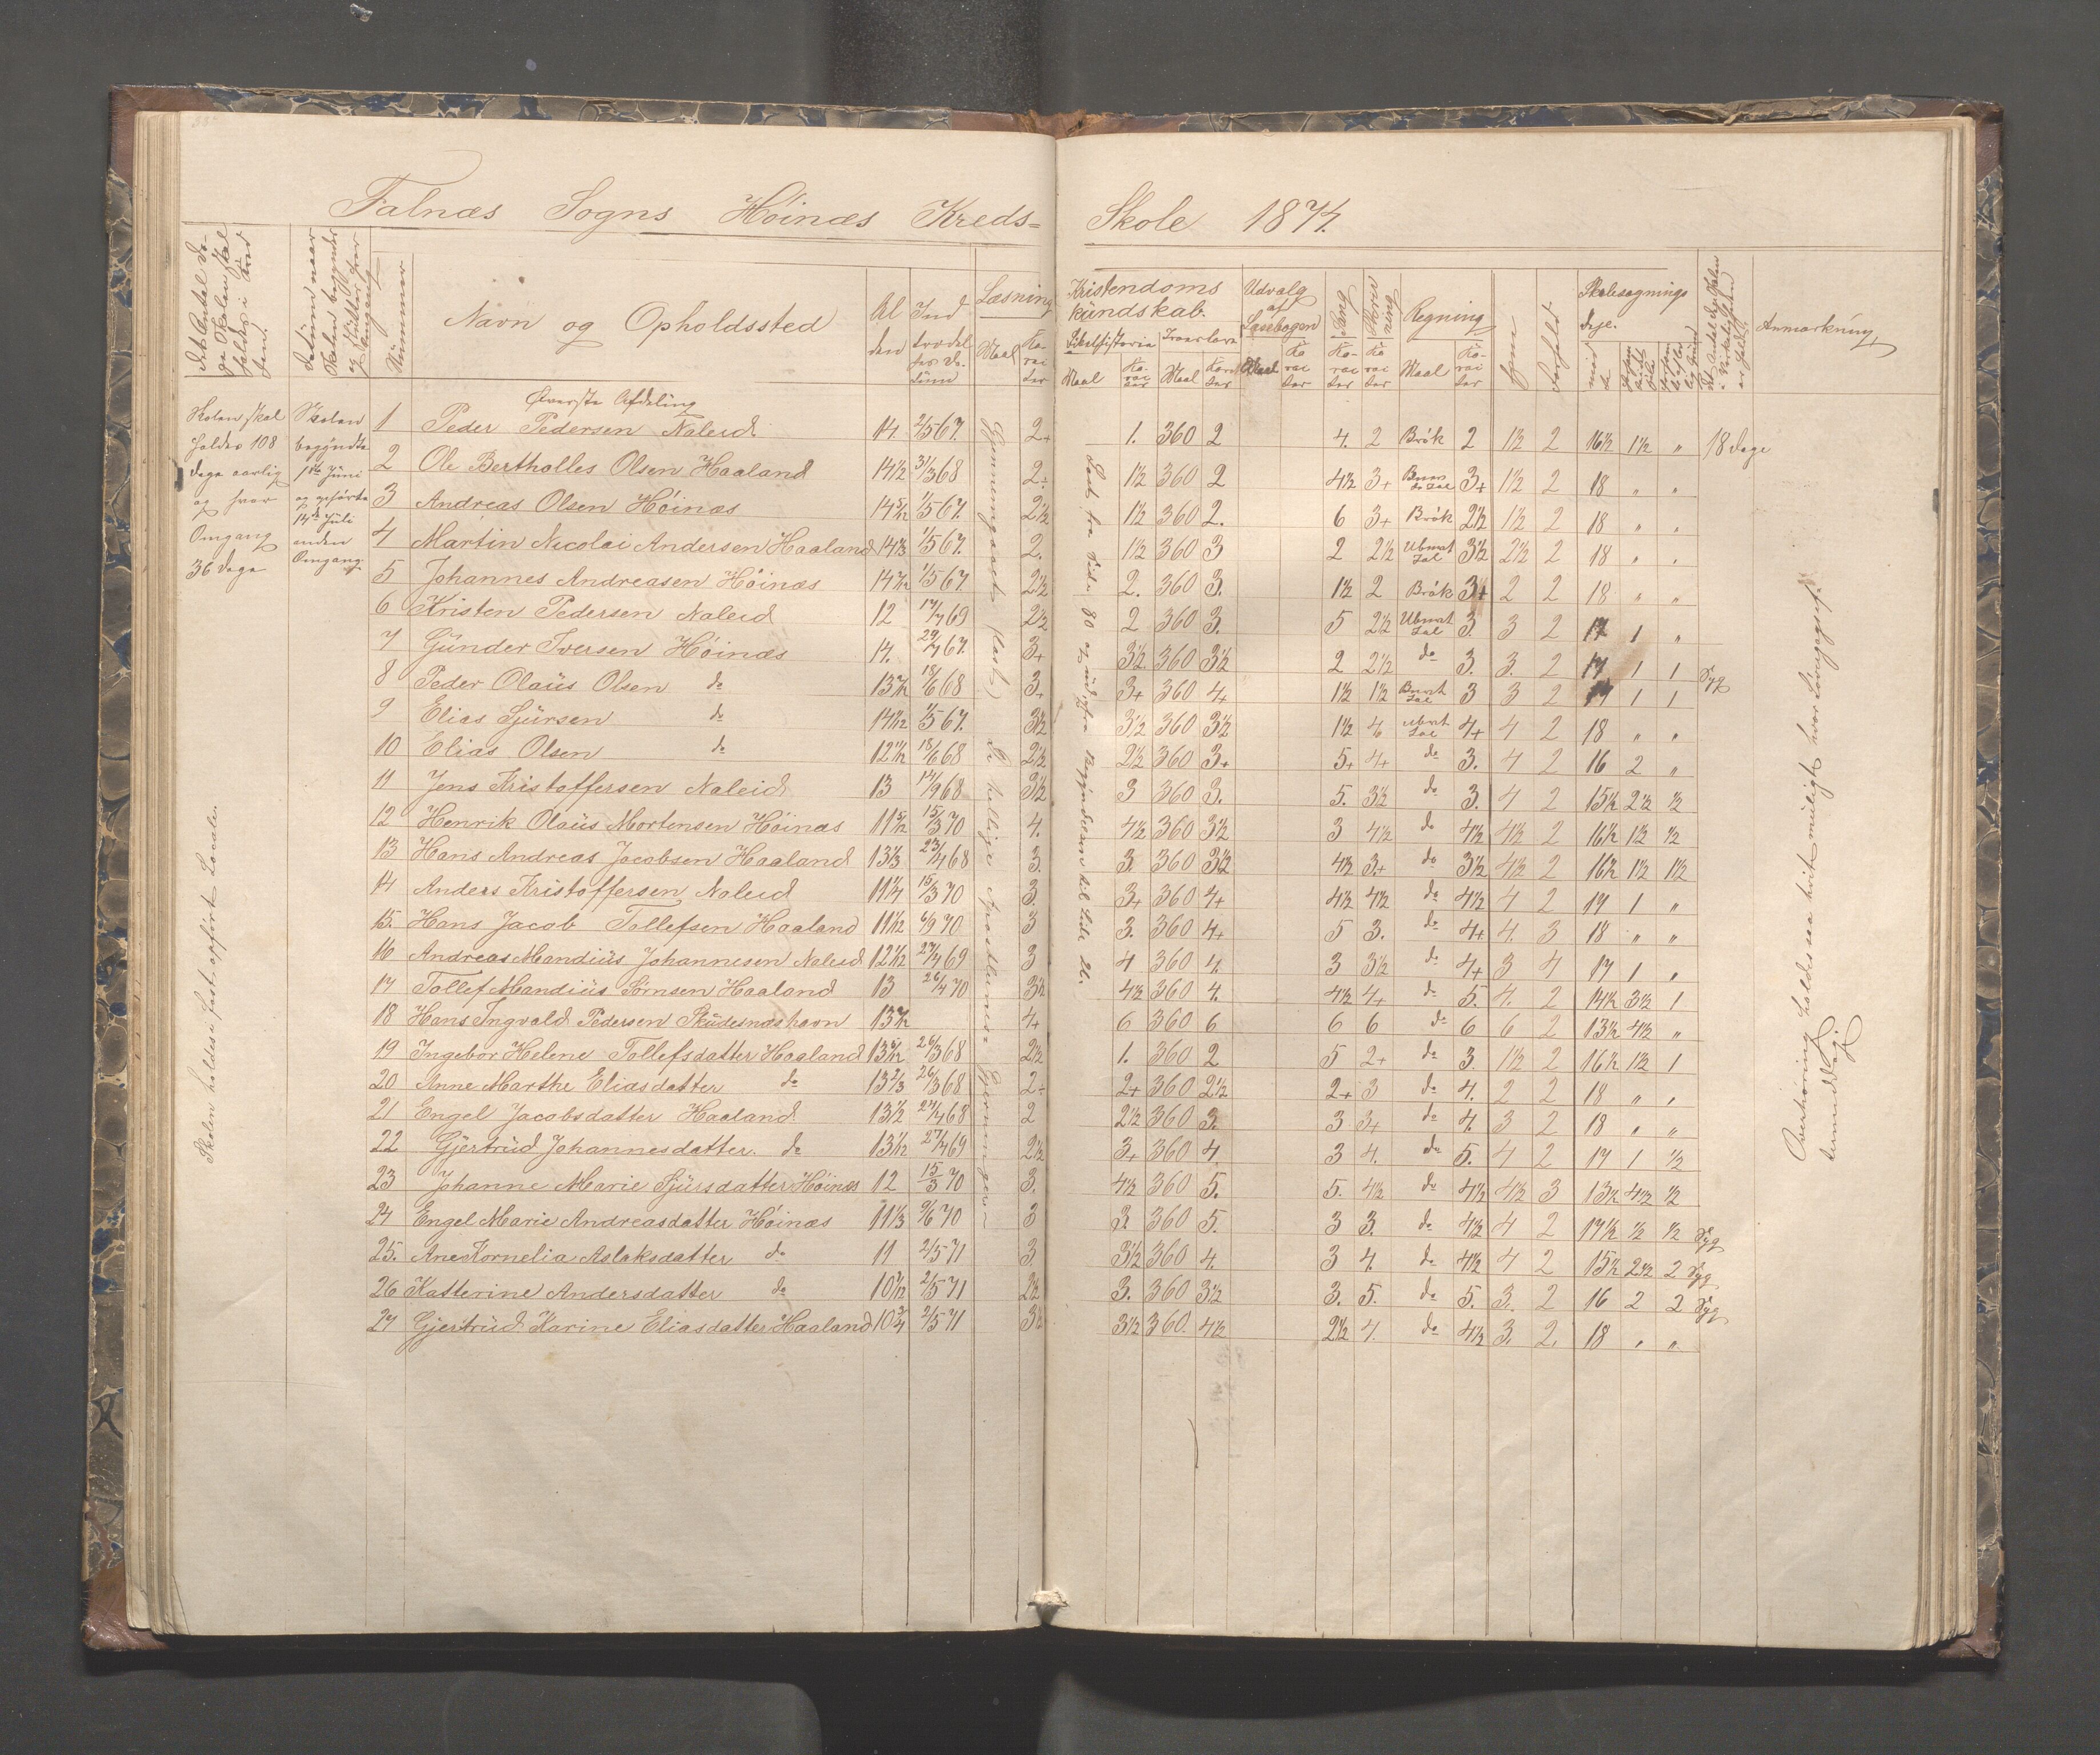 Falnæs Sogns Höinæs Kreds=
Skole 1874.
Det Antal Dage Skolen skal holdes i Kredsen.
Datum naar Skolen begynder og slutter hver Omgang
Nummer
Navn og Opholdssted
Alder
Indtrædelses Datum
Læsning
Maal
Karakter
Kristendoms kundskab.
Bibelhistorie
Troeslære
Maal
Karakter
Maal
Karakter
Udvalg af Læsebogen
Maal
Karakter
Sang
Karakter
Skrivning
Karakter
Regning
Maal
Karakter
Evne
Forhold
Skolesøgnings Dage.
mødte
Anmærkning
Øverste Afdeling
Skolen skal holdes 108 Dage aarlig og hver Omgang 36 Dage
Skolen begyndte 1ste Juni og ophørte 14de Juli anden Omgang.
Skolen holdes i fast, opført Locale.
Gjennemgaaet (læst) De hellige Apostlenes Gjerninger
Læst fra Side 80 og ud, fra Begyndelsen til Side 26.
1 Peder Pedersen Naleid 14 2/5 67. 2+ 1. 360 2 4. 2 Brök 2 1½ 2 16½ 1½ " 18 Dage
2 Ole Bertholles Olsen Haaland 14½ 31/3 68 2÷ 1½ 360 2 4½ 3+ 3+ 1½ 2 18 " "
3 Andreas Olsen Höinæs 14 5/12 1/5 67. 2½ 1½ 360 2. 6 3+ Brök 2½ 1½ 2 18 " "
4 Martin Nicolai Andersen Haaland 14⅓ 1/5 67. 2. 1½ 360 3 2 2½ Ubnævt Tal 3½ 2½ 2 18 " "
5 Johannes Andreasen Höinæs 1/5 67. 2½ 2. 360 3. 1½ 2 Brök 3+ 2 2 18 " "
6 Kristen Pedersen Naleid 12 17/7 69 2½ 2 360 3. 5 2½ Ubnævt Tal 3. 3 2 17 1 "
7 Gunder Iversen Höinæs 14. 29/7 67. 3+ 3½ 360 3½ 2 2½ do 3. 3. 2 17 1 1 Syg
8 Peder Olaüs Olsen do 18/6 68 3+ 3+ 360 4+ 1½ 1½ 3 3 2 17 1 1
9 Elias Sjürsen do 1/5 67. 3½ 3½ 360 3½ 1½ 4 Ubnævt Tal 4+ 4 2 18 " "
10 Elias Olsen do 18/6 68 2½ 2½ 360 3+ 5+ 4+ do 3. 4 2 16 2 "
11 Jens Kristoffersen Naleid 13 14/9 68 3½ 3 360 3. 5. 3½ do 3. 4 2 15½ 2½ ½
12 Henrik Olaüs Mortensen Höinæs 11 5/12 15/3 70 4. 4½ 360 3½ 3 4½ do 4½ 4½ 2 16½ 1½ ½
13 Hans Andreas Jacobsen Haaland 13⅓ 23/4 68 3. 3. 360 3½ 4½ 3+ do 3½ 4½ 2 16½ 1½ 1½
14 Anders Kristoffersen Naleid 15/3 70 3. 3+ 360 4+ 4½ 4½ do 4½ 4 2 17 1 "
15. Hans Jacob Tollefsen Haaland 6/9 70 3 3. 360 4+ 5 3. do 4+ 4. 3 18 " "
16 Andreas Mandiüs Johannesen Naleid 27/7 69 3 4 360 4. 3 3½ do 4+ 3 4 17 1 "
17 Tollef Mandiüs Sörnsen Haaland 13 26/4 70 3½ 4½ 360 4. 4½ 4+ do 5. 4. 2 14½ 3½ 1
18 Hans Ingvald Pedersen Skudesnæshavn 4+ 6 360 6 6 6 do 6 6 2 13½ 4½ "
19 Ingebor Helene Tollefsdatter Haaland 26/3 68 2½ 1. 360 2 5 2+ do 3. 1½ 2 16½ 1½ 1
20 Anne Marthe Eliasdatter do 13⅔ 26/3 68 2÷ 2+ 360 2½ 2+ 3 do 4. 2 2 18 " "
21 Engel Jacobsdatter Haaland 13½ 27/4 68 2 2½ 360 3. 3 3+ do 4. 3 2 18 " "
22 Gjertrud Johannesdatter. do 27/7 69 2½ 3+ 360 4. 3 4. do 5. 4 2 17 1 ½
23 Johanne Marie Sjürsdatter Höinæs 12 15/3 70 3. 4½ 360 5. 5. 4½ do 4½ 4½ 3 13½ 4½ ½
24 Engel Marie Andreasdatter Höinæs 11⅓ 9/6 70 3 3. 360 5. 3 3. do 4½ 4 2 17½ ½ ½ Syg
25. Ane Kornelia Aslaksdatter do 11 2/5 71 3. 3½ 360 4. 3 4. do 4½ 4 2 15½ 2½ 2 Syg
26 Katterine Andersdatter do 2/5 71 2½ 3. 360 3½ 3. 5. do 5. 3. 2 16 2 2 Syg
27 Gjertrüd Karine Eliasdatter Haaland 10¾ 2/5 71 3½ 3½ 360. 4½ 2½ 4. do 4½ 3. 2. 18 " "